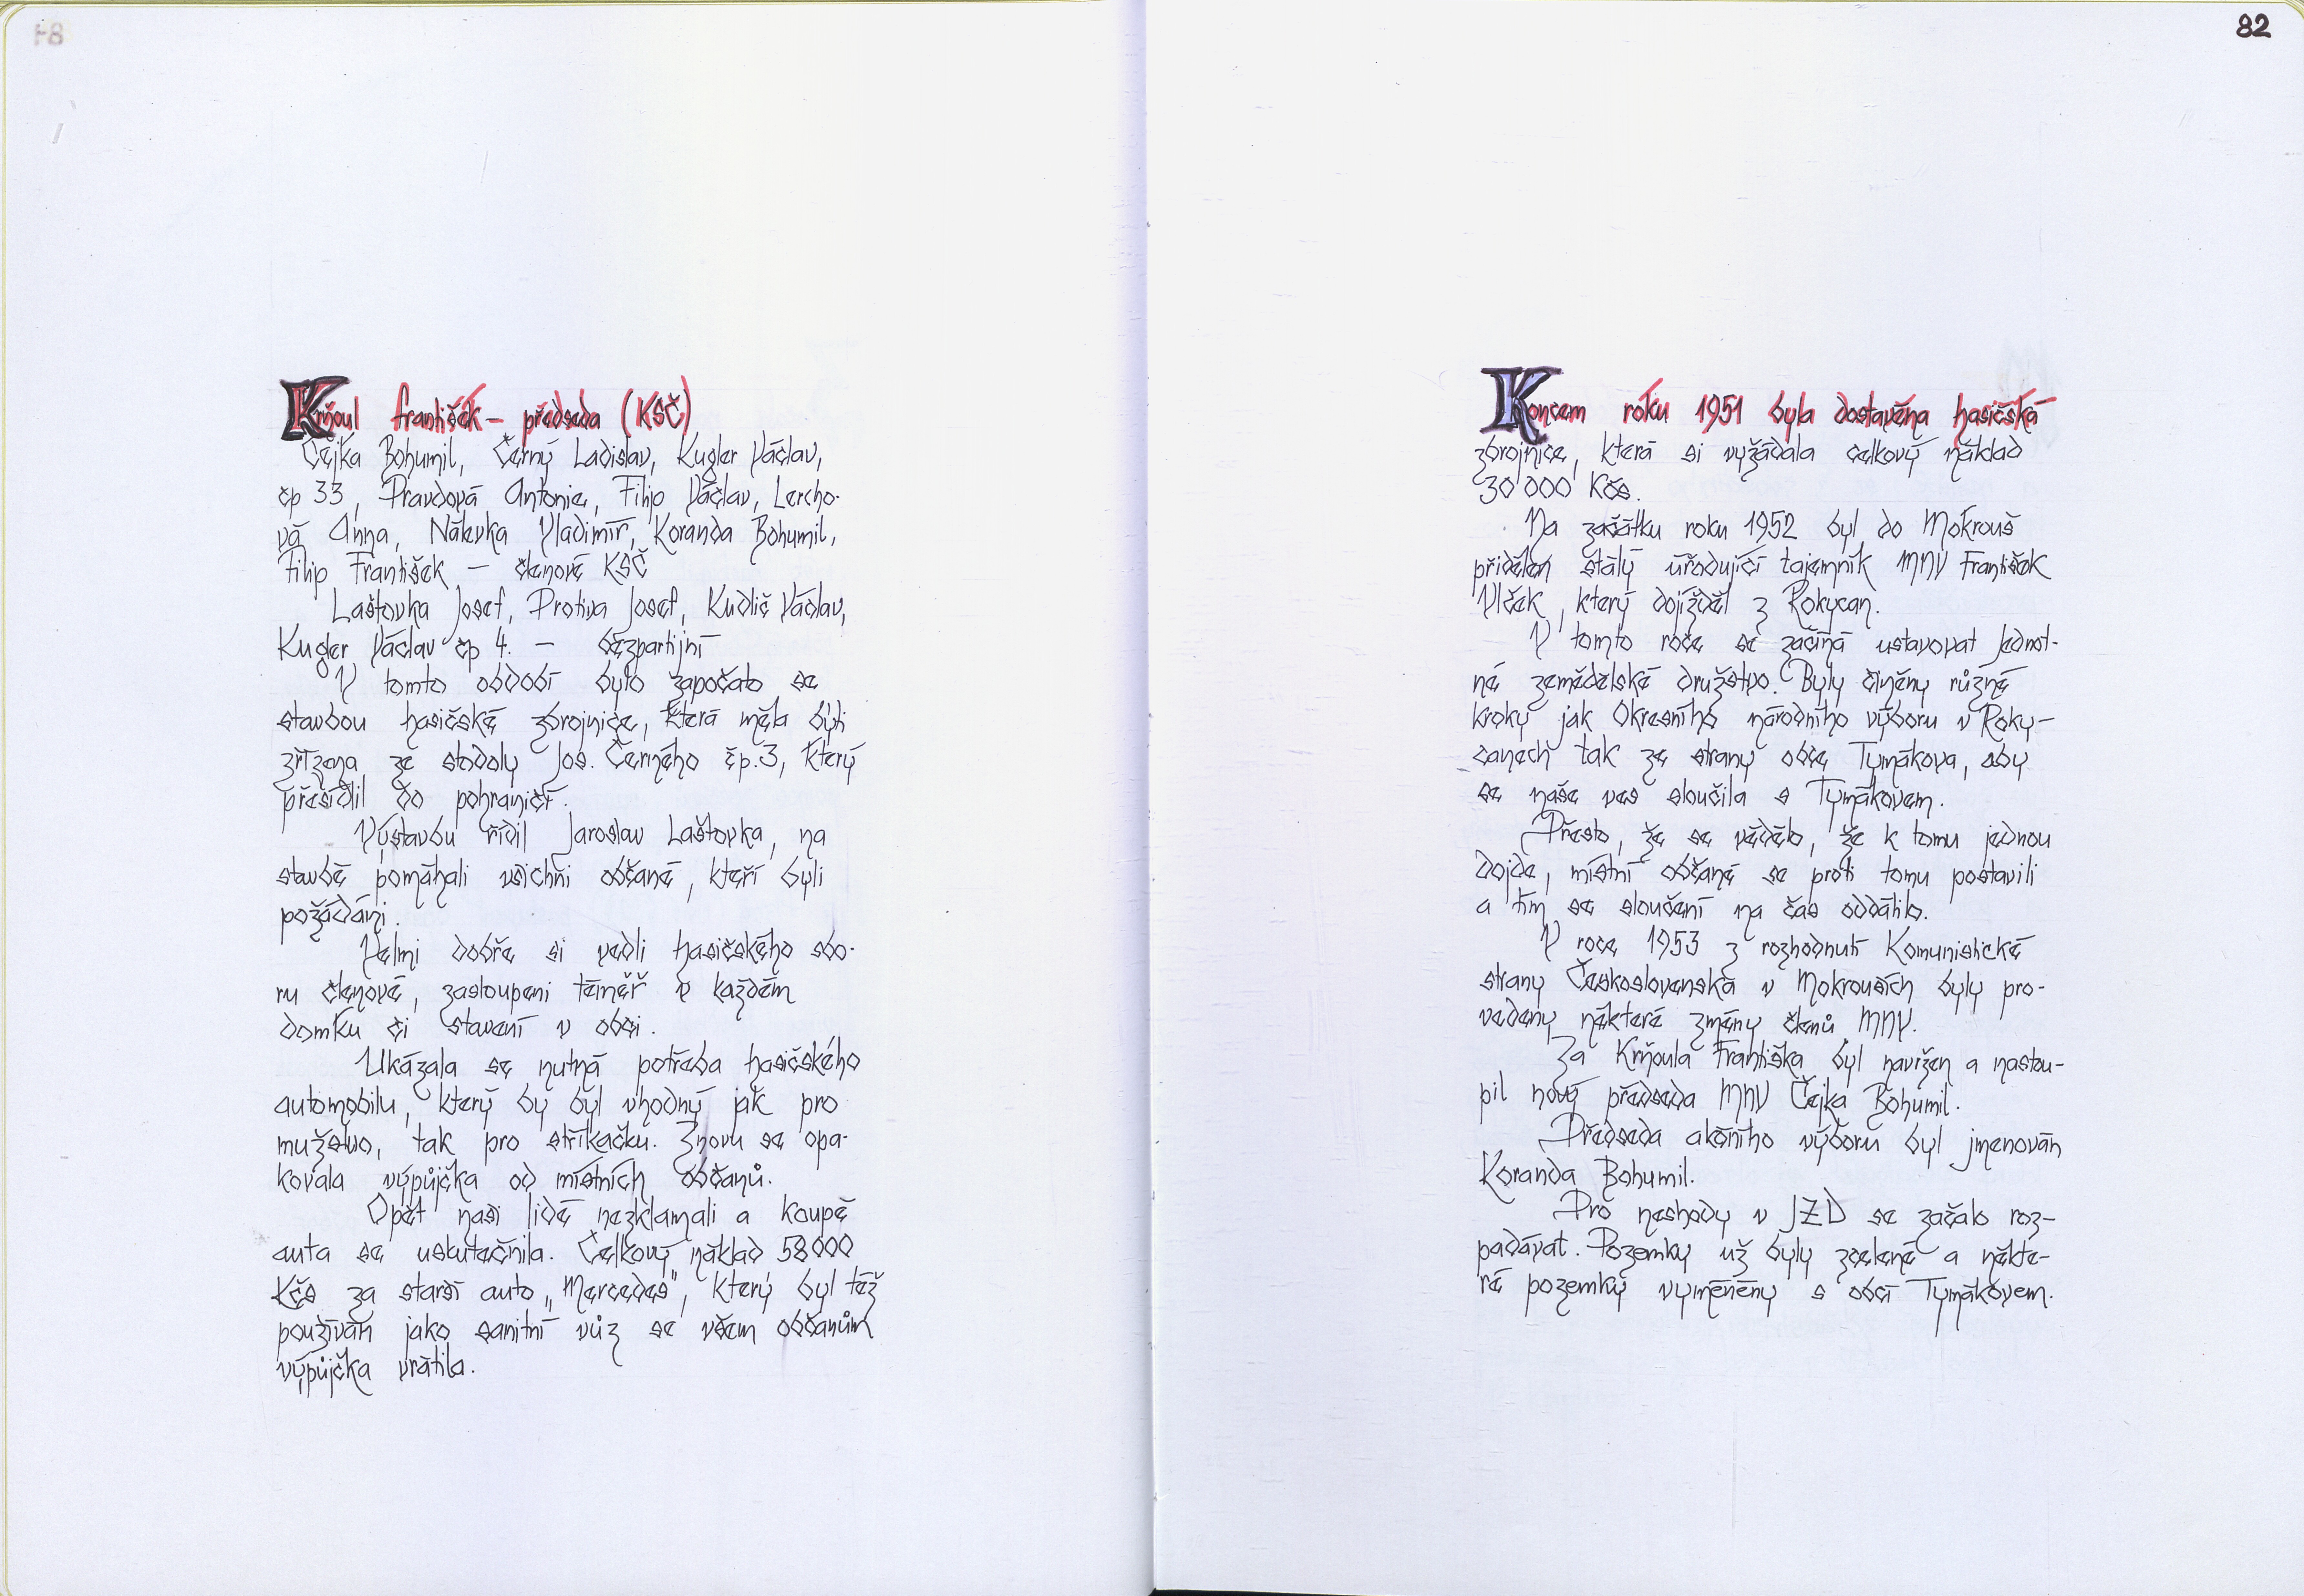 Krňoul František – předseda (KSČ)
Čejka Bohumil, Černý Ladislav, Kugler Václav,
čp 33, Pravdová Antonie, Filip Václav, Lercho-
vá Anna, Nálevka Vladimír, Koranda Bohumil,
Filip František – členové KSČ
Laštovka Josef, Protiva Josef, Kudlič Václav,
Kugler Václav čp 4. – bezpartijní
V tomto období bylo započato se
stavbou hasičské zbrojnice, která měla býti
zřízena ze stodoly Jos. Černého čp.3, který
přesídlil do pohraničí.
Výstavbu řídil Jaroslav Laštovka, na
stavbě pomáhali všichni občané, kteří byli
požádáni.
Velmi dobře si vedli hasičského sbo-
ru členové, zastoupeni téměř v každém
domku či stavení v obci.
Ukázala se nutná potřeba hasičského
automobilu, který by byl vhodný jak pro
mužstvo, tak pro stříkačku. Znovu se opa-
kovala výpůjčka od místních občanů.
Opět naši lidé nezklamali a koupě
auta se uskutečnila. Celkový náklad 58000
Kčs za starší auto „Mercedes", který byl též
používán jako sanitní vůz se všem občanům
výpůjčka vrátila.
82
Koncem roku 1951 byla dostavěna hasičská
zbrojnice, která si vyžádala celkový náklad
30 000 Kčs.
Na začátku roku 1952 byl do Mokrouš
přidělen stálý úřadující tajemník MNV František
Vlček, který dojížděl z Rokycan.
V tomto roce se začíná ustavovat Jednot-
né zemědělské družstvo. Byly činěny různé
kroky jak Okresního národního výboru v Roky-
canech tak ze strany obce Tymákova, aby
se naše ves sloučila s Tymákovem.
Přesto, že se vědělo, že k tomu jednou
dojde, místní občané se proti tomu postavili
a tím se sloučení na čas oddálilo.
V roce 1953 z rozhodnutí Komunistické
strany Československa v Mokrouších byly pro-
vedeny některé změny členů MNV.
Za Krňoula Františka byl navržen a nastou-
pil nový předseda MNV Čejka Bohumil.
Předseda akčního výboru byl jmenován
Koranda Bohumil.
Pro neshody v JZD se začalo roz-
padávat. Pozemky už byly zcelené a někte-
ré pozemky vyměněny s obcí Tymákovem.